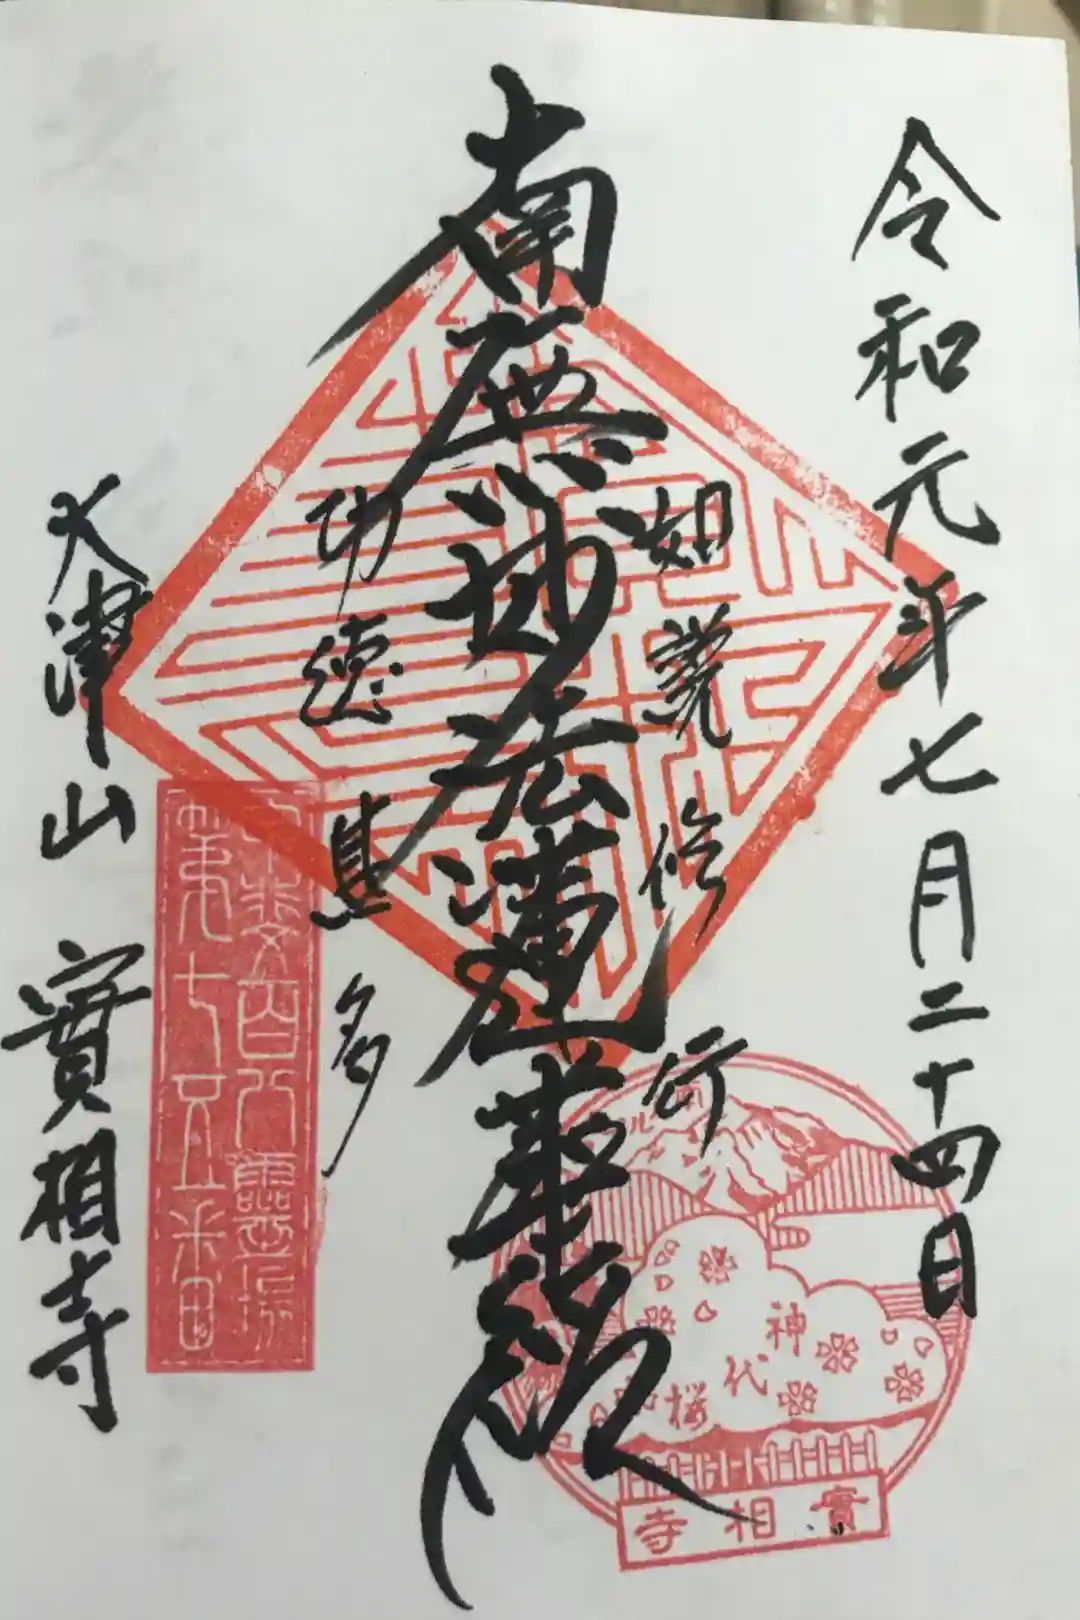 令和元年七月二十四日
如説修行
南無妙法蓮華経
功徳甚多
大津山 實相寺
神代桜
實相寺